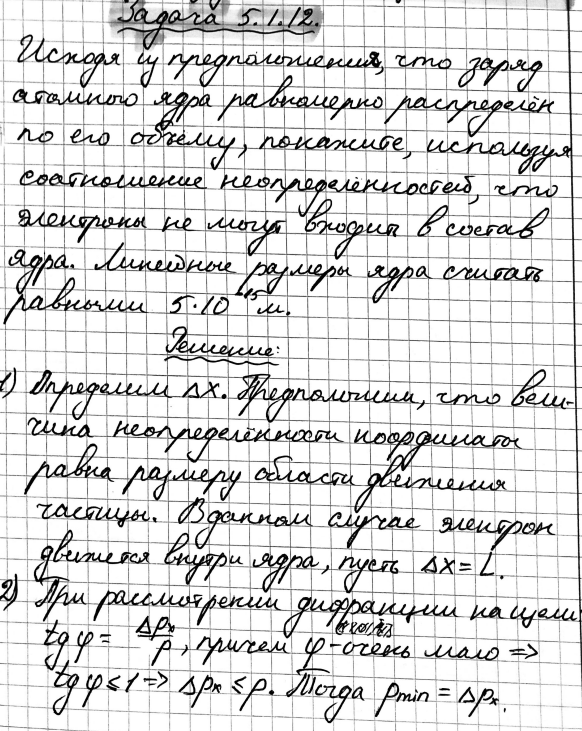 Задача 5.1.12.
Исходя из предположения, что заряд
атомного ядра равномерно распределён
по его объёму, покажите, используя
соотношение неопределённостей, что
электроны не могут входить в состав
ядра. Линейные размеры ядра считать
равными 5·10⁻¹⁵м.
Решение:
1) Определим Δx. Предположим, что вели-
чина неопределённости координаты
равна размеру области движения
частицы. В данном случае электрон
движется внутри ядра, пусть Δx = L.
2) При рассмотрении дифракции на щели
tg φ = Δpₓ/p, причем φ - очень мало =>
tg φ ≤ 1 => Δpₓ ≤ p. Тогда pmin = Δpₓ.